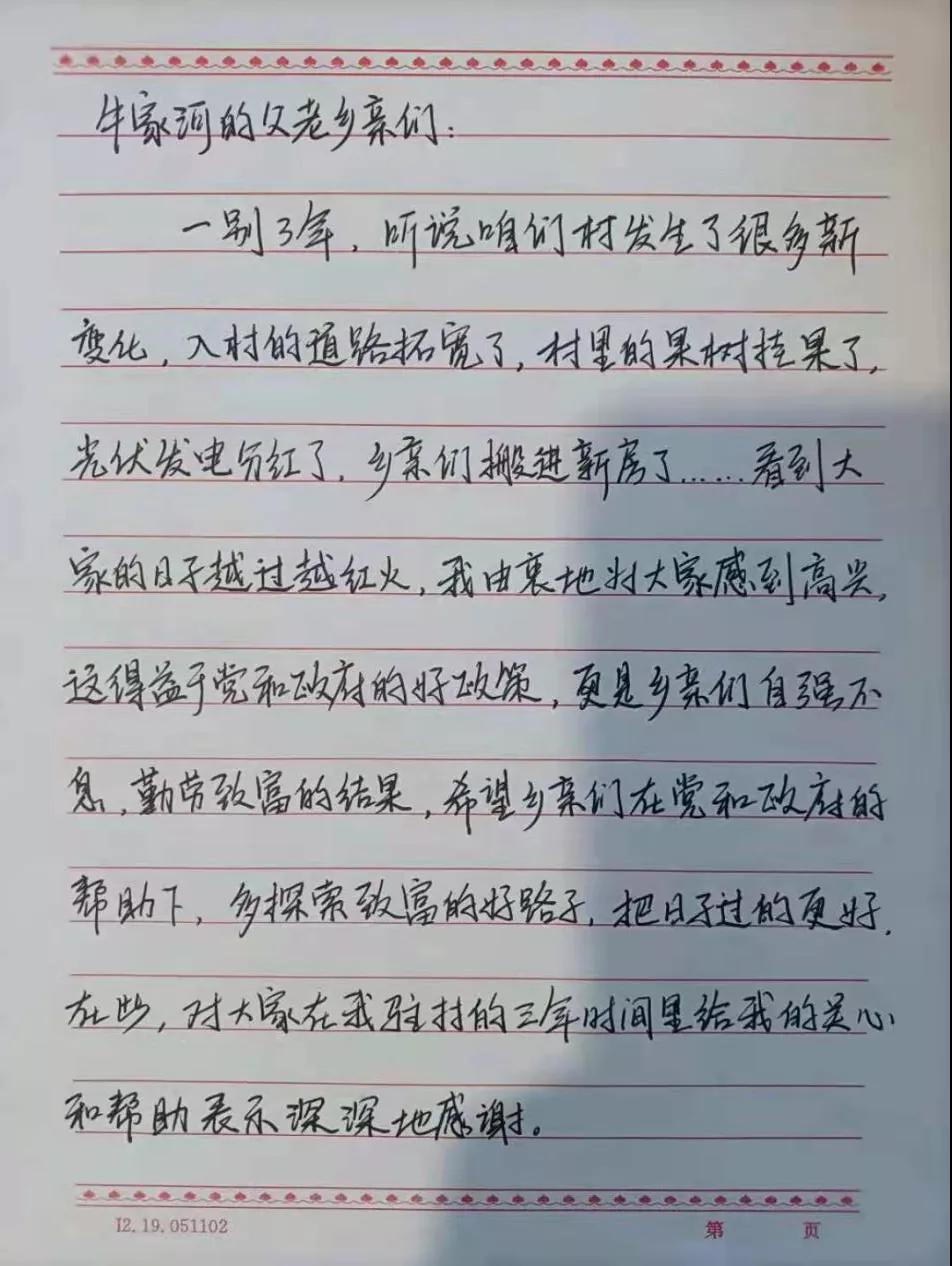 牛家河的父老乡亲们：
一别3年，听说咱们村发生了很多新
变化，入村的道路拓宽了，村里的果树挂果了，
光伏发电分红了，乡亲们搬进新房了……看到大
家的日子越过越红火，我由衷地对大家感到高兴，
这得益于党和政府的好政策，更是乡亲们自强不
息，勤劳致富的结果，希望乡亲们在党和政府的
帮助下，多探索致富的好路子，把日子过的更好，
在此，对大家在我驻村的三年时间里给我的关心
和帮助表示深深地感谢。
12.19.051102
第 页